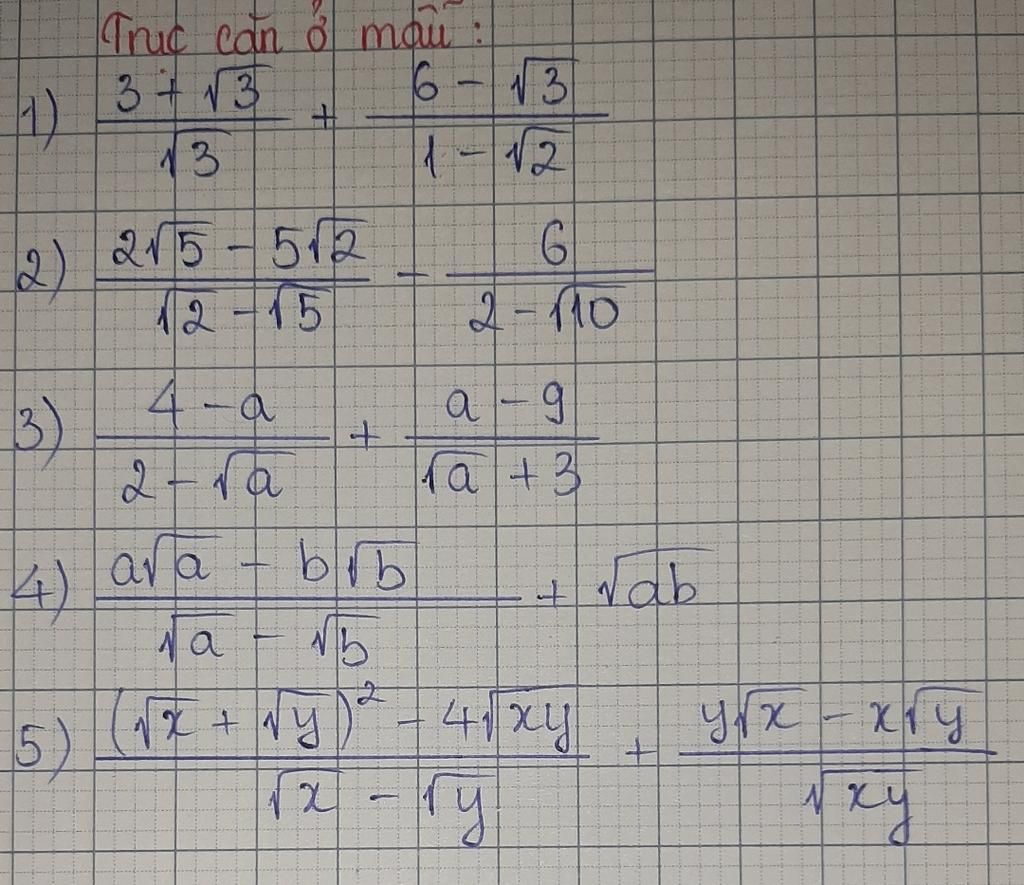 Trục căn ở mẫu:
1) (3 + √3)/√3 + (6 - √3)/(1 - √2)
2) (2√5 - 5√2)/(√2 - √5) - 6/(2 - √10)
3) (4 - a)/(2 - √a) + (a - 9)/(√a + 3)
4) (a√a - b√b)/(√a - √b) + √(ab)
5) ((√x + √y)² - 4√(xy))/(√x - √y) + (y√x - x√y)/√(xy)